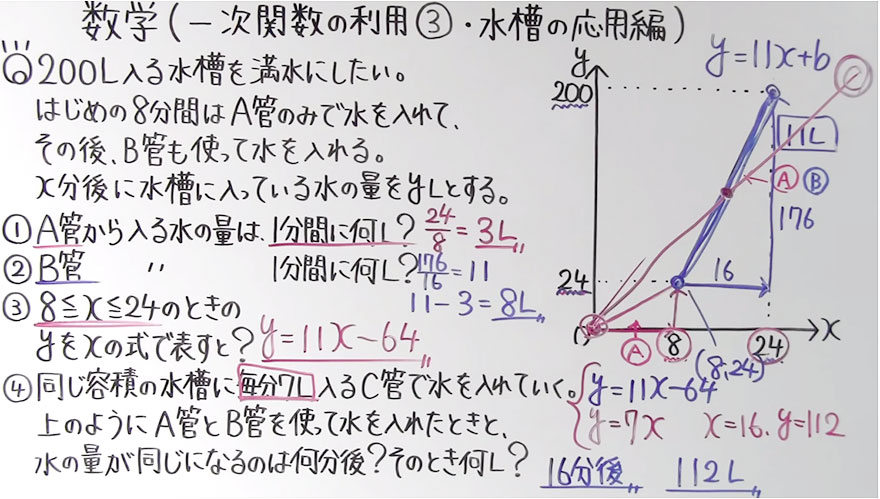 数学(一次関数の利用③・水槽の応用編)
200L入る水槽を満水にしたい。
はじめの8分間はA管のみで水を入れて、
その後、B管も使って水を入れる。
x分後に水槽に入っている水の量をyLとする。
①A管から入る水の量は、1分間に何L? 24/8=3L
②B管 〃 1分間に何L? 176/16=11
11-3=8L
③8≦x≦24のときの
yをxの式で表すと? y=11x-64
④同じ容積の水槽に毎分7L入るC管で水を入れていく。
上のようにA管とB管を使って水を入れたときと、
水の量が同じになるのは何分後?そのとき何L?
y=11x+b
y
200
11L
A B
176
24
16
O A 8 24 x
(8,24)
y=11x-64
y=7x x=16、y=112
16分後 112L